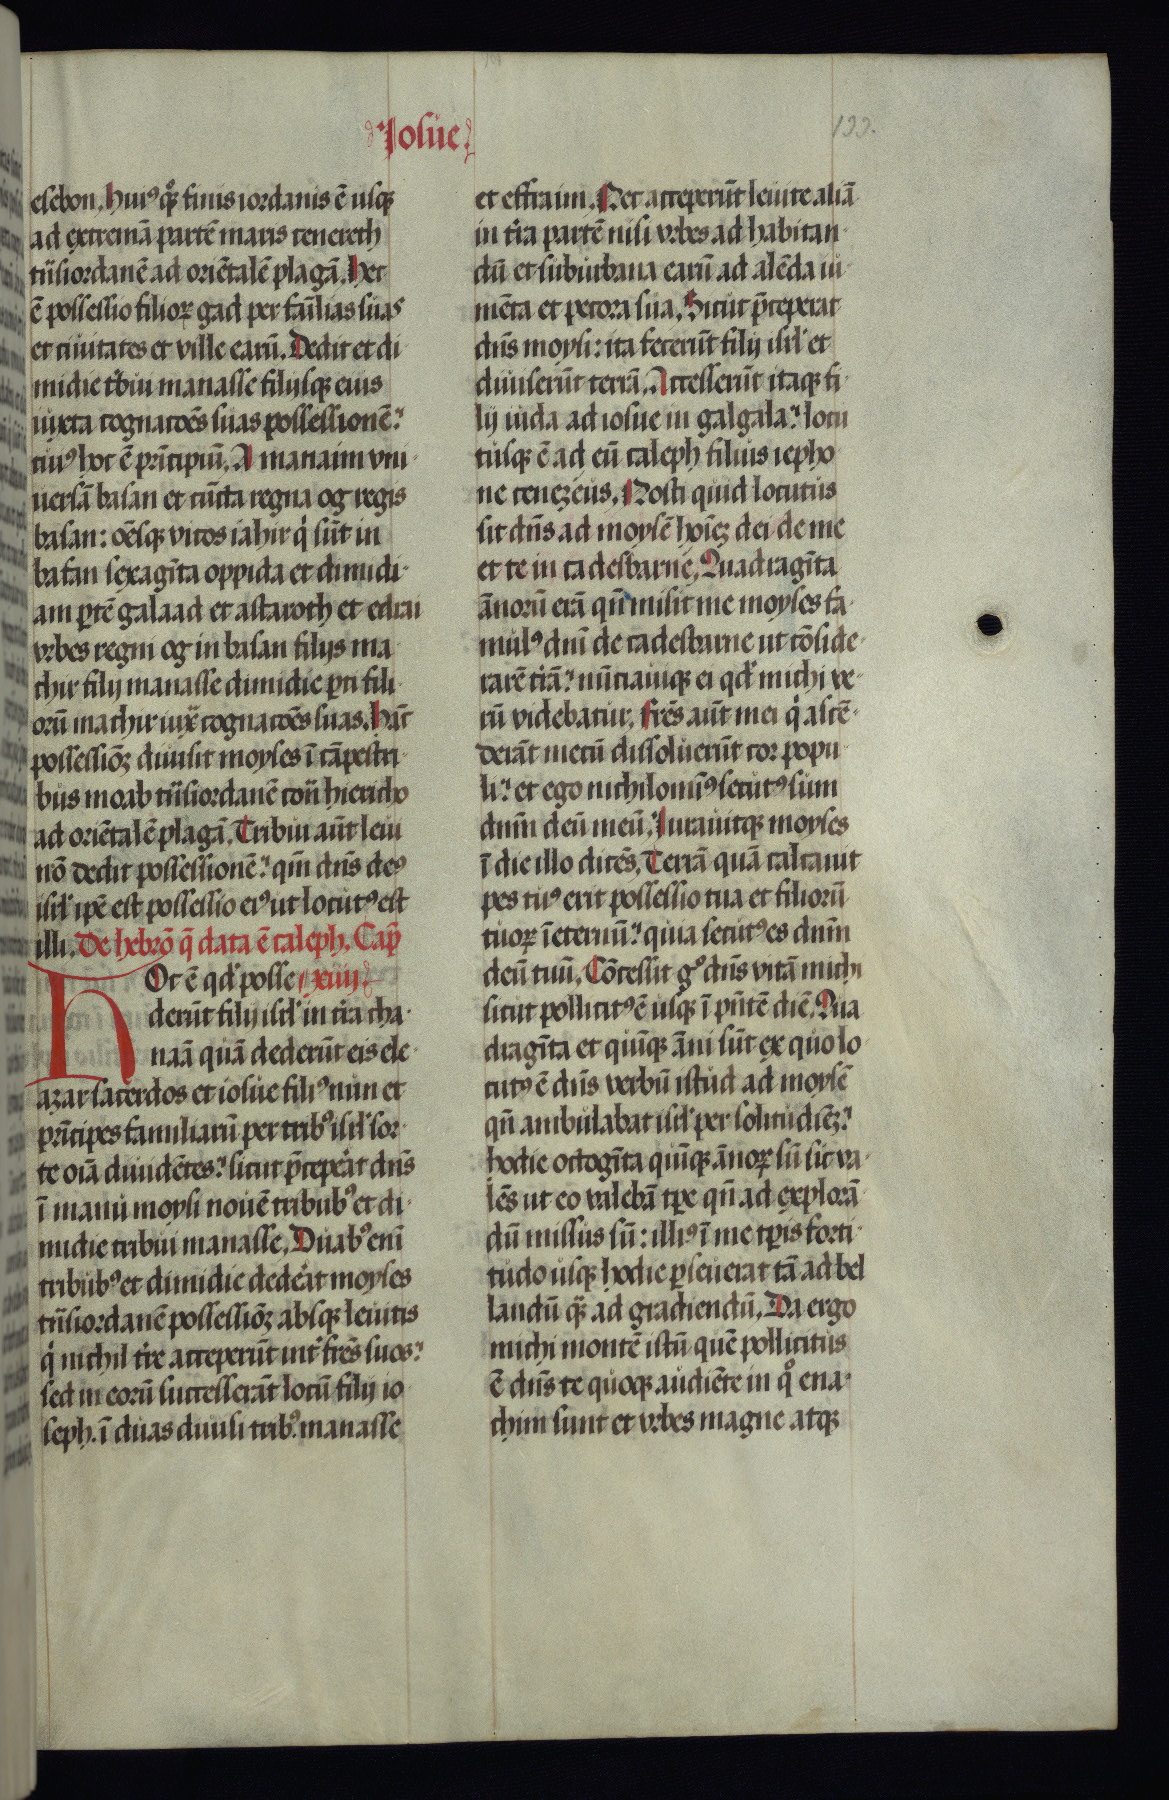 Iosue
199.
esebon. Huiꝰ qͦꝫ finis iordanis ē usqꝫ
ad extremā partē maris cenereth
trāsiordanē ad oriētalē plagā. Hec
ē possessio filioꝝ gad per fālias suas
et ciuitates et ville earū. Dedit et di
midie tͥbui manasse filijsqꝫ eius
iuxta cognacōes suas possessionē:
cuiꝰ hoc ē prīcipiū. A manaim vni
uersā basan et cūcta regna og regis
basan: oēsqꝫ vicos iahir qͥ sūt in
basan sexagīta oppida et dimidi
am ꝑtē galaad et astaroth et edrai
vrbes regni og in basan filijs ma
chir filij manasse dimidie ꝑti fili
orū machir iux̄ cognacōes suas. Hāc
possessiōꝫ diuisit moyses ī cāpestri
bus moab trāsiordanē cōtͣ hiericho
ad oriētalē plagā. Tribui aūt leui
nō dedit possessionē: qm̄ dn̄s deꝰ
isrl̓ ipē est possessio eiꝰ ut locutꝰ est
illi. De hebrō q̄ data ē caleph. Cap̄
Hoc ē qd̓ posse xiiij
derūt filij isrl̓ in tͬra cha
naā quā dederūt eis ele
azar sacerdos et iosue filiꝰ nun et
prīcipes familiarū per tribꝰ isrl̓ sor
te oīa diuidētes: sicut p̄ceperat dn̄s
ī manu moysi nouē tribubꝰ et di
midie tribui manasse. Duabꝰ enī
tribubꝰ et dimidie dedeāt moyses
trāsiordanē possessiōꝫ absqꝫ leuitis
qͥ nichil tͬre acceperūt intͬ frēs suos:
sed in eorū successerāt locū filij io
seph. ī duas diuisi tribꝰ. manasse
et effraim. Nec acceperūt leuite aliā
in tͬra partē nisi vrbes ad habitan
dū et subiurbana earū ad alēda iu
mēta et pecora sua. Sicut p̄ceperat
dn̄s moysi: ita fecerūt filij isrl̓ et
diuiserūt terrā. Accesserūt itaqꝫ fi
lij iuda ad iosue in galgala: locu
tusqꝫ ē ad eū caleph filius iepho
ne cenezeus. Nosti quid locutus
sit dn̄s ad moysē hoīeꝫ dei de me
et te in cadesbarne. Quadragīta
ānorū erā qn̄ misit me moyses fa
mulꝰ dnī de cadesbarne ut cōside
rarē tͬrā: nūciauiqꝫ ei qd̓ michi ve
rū videbatur. Frēs aūt mei qͥ ascē
derāt mecū dissoluerūt cor popu
li: et ego nichilomīꝰ secutꝰ sum
dnm̄ deū meū. Iurauitqꝫ moyses
ī die illo dicēs. Terrā quā calcauit
pes tuꝰ erit possessio tua et filiorū
tuoꝝ ī eternū: quia secutꝰ es dnm̄
deū tuū. Cōcessit gͦ dn̄s vitā michi
sicut pollicitꝰ ē usqꝫ ī pn̄tē diē. Qua
dragīta et quīqꝫ āni sūt ex quo lo
cutꝰ ē dn̄s verbū istud ad moysē
qn̄ ambulabat isrl̓ per solitudīeꝫ:
hodie octogīta quīqꝫ ānoꝝ sū sic va
lēs ut eo valebā tꝑe qn̄ ad explorā
dū missus sū: illiꝰ ī me tꝑis forti
tudo usqꝫ hodie ꝑseuerat tā ad bel
landū qͣꝫ ad gradiendū. Da ergo
michi montē istū quē pollicitus
ē dn̄s te quoqꝫ audiēte in qͦ ena
chim sunt et vrbes magne atqꝫ